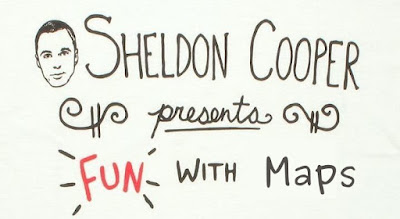 SHELDON COOPER
presents
FUN WITH Maps